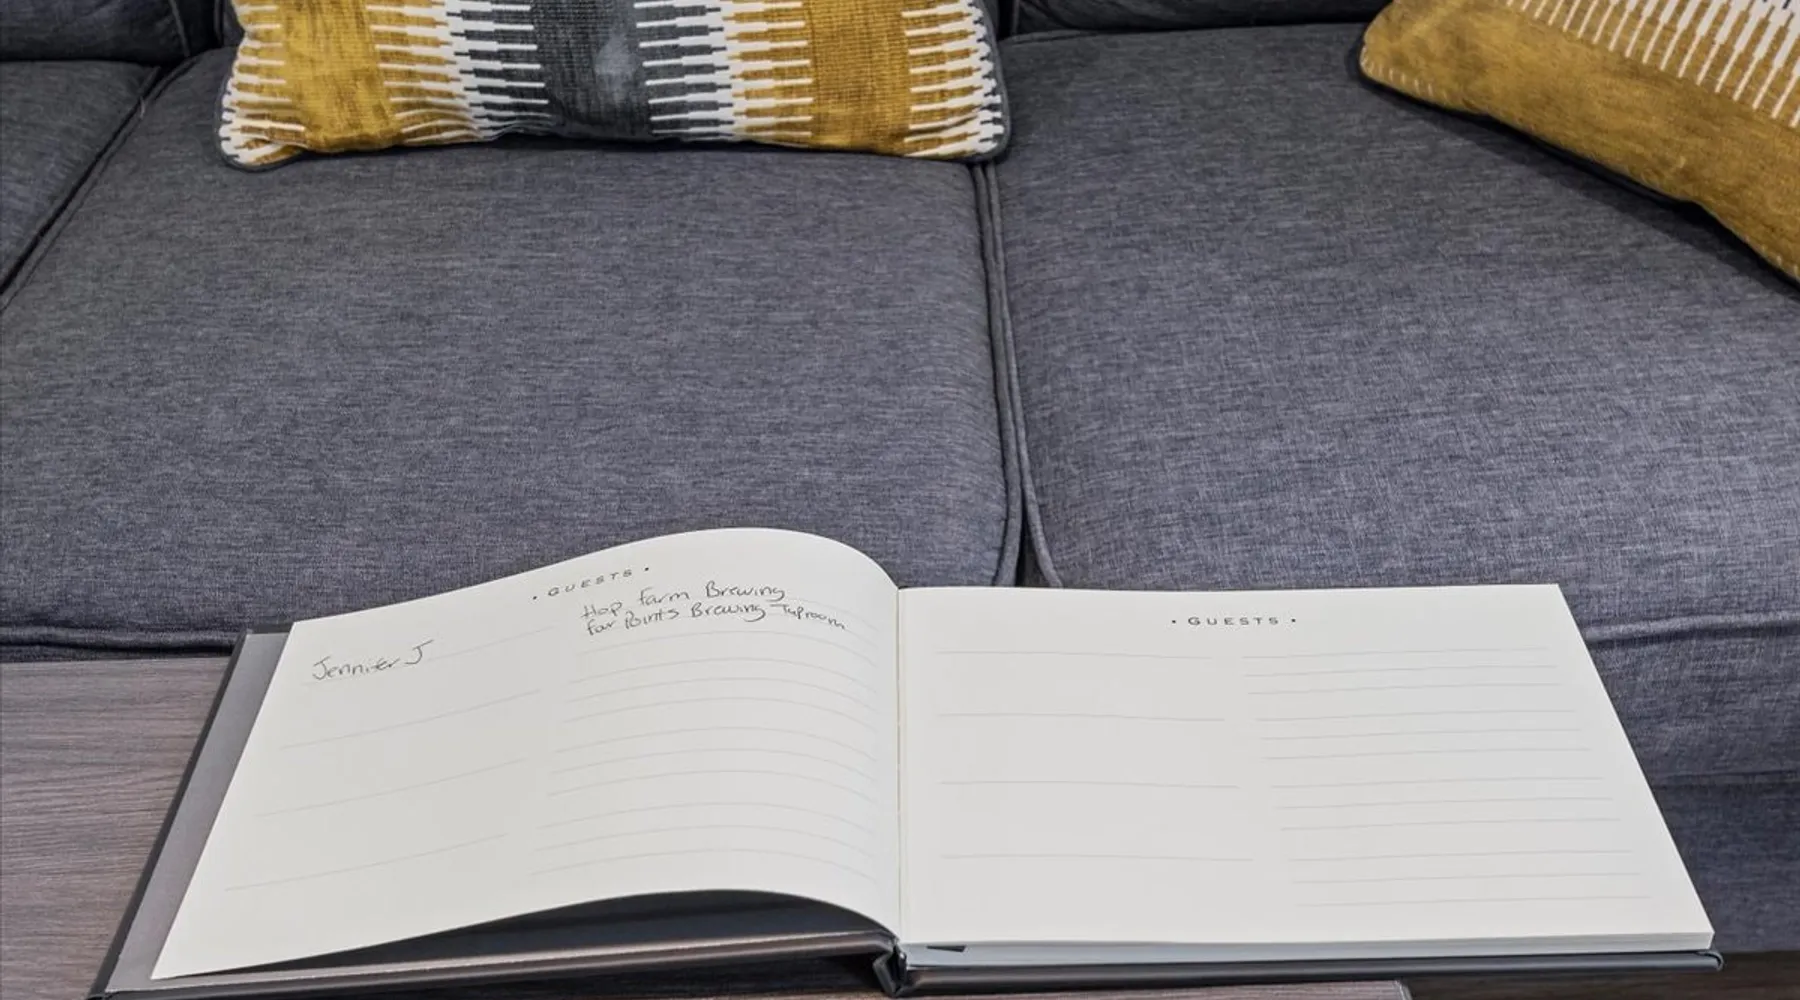 • GUESTS •
Hop Farm Brewing
Far Points Brewing Taproom
Jennifer J
• GUESTS •